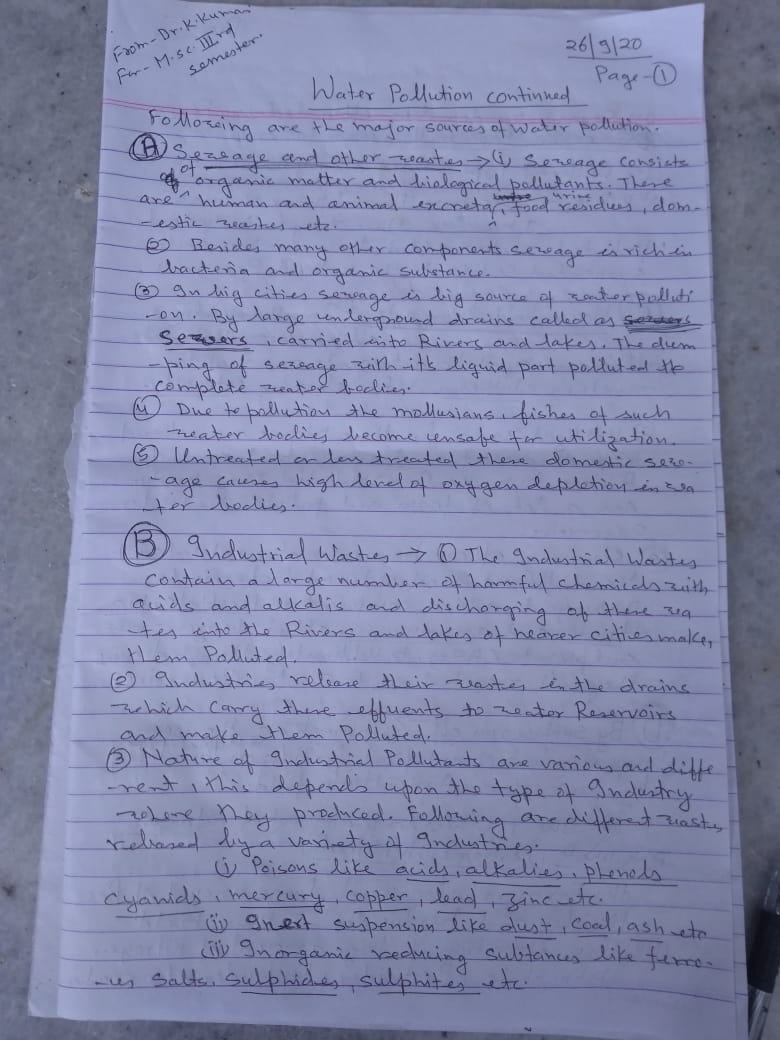 From - Dr. K. Kumar
For - M.Sc. IIIrd
semester.
26/9/20
Page-①
Water Pollution continued
Following are the major sources of water pollution.
Ⓐ Sewage and other wastes → (i) Sewage consists
of organic matter and biological pollutants. These
are human and animal excreta, urine food residues, dom-
-estic wastes etc.
② Besides many other components sewage is rich in
bacteria and organic substance.
③ In big cities sewage is big source of water polluti
-on. By large underground drains called as
Sewers, carried into Rivers and lakes. The dum
-ping of sewage with its liquid part polluted the
complete water bodies.
④ Due to pollution the mollusians, fishes of such
water bodies become unsafe for utilization.
⑤ Untreated or less treated these domestic sew-
-age causes high level of oxygen depletion in wa
-ter bodies.
Ⓑ Industrial Wastes → ① The Industrial Wastes
contain a large number of harmful chemicals with
acids and alkalis and discharging of these wa
-tes into the Rivers and lakes of nearer cities make,
them Polluted.
② Industries release their wastes in the drains
which carry these effuents to water Reservoirs
and make them Polluted.
③ Nature of Industrial Pollutants are various and diffe
-rent, this depends upon the type of Industry
where they produced. Following are different wastes
released by a variety of Industries.
(i) Poisons like acids, alkalies, phenols
cyanids, mercury, copper, lead, Zinc etc.
(ii) Inert suspension like dust, coal, ash etc
(iii) Inorganic reducing subtances like ferro-
-us salts, sulphides, sulphites etc.